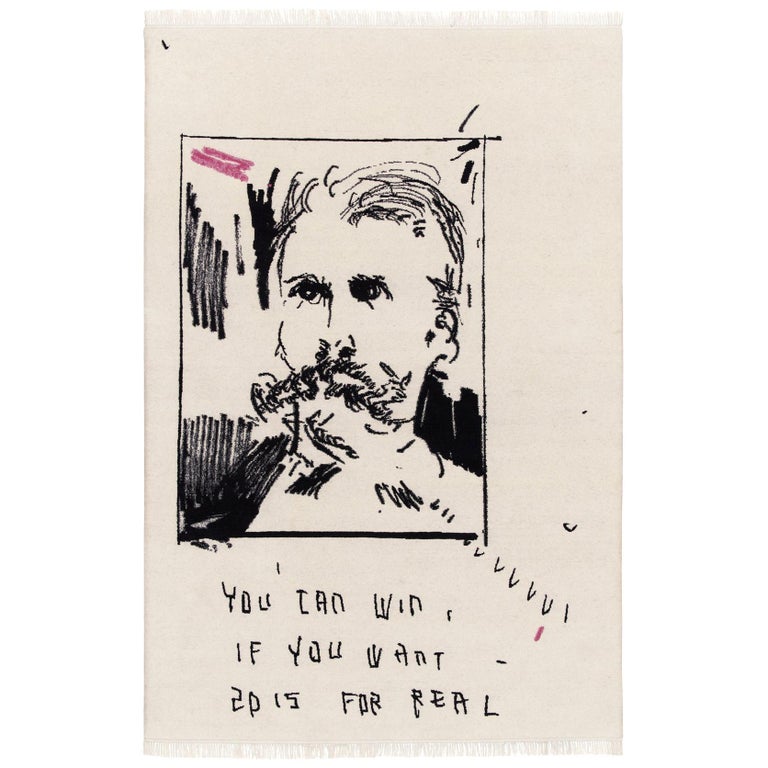 YOU CAN WIN,
IF YOU WANT -
2015 FOR REAL